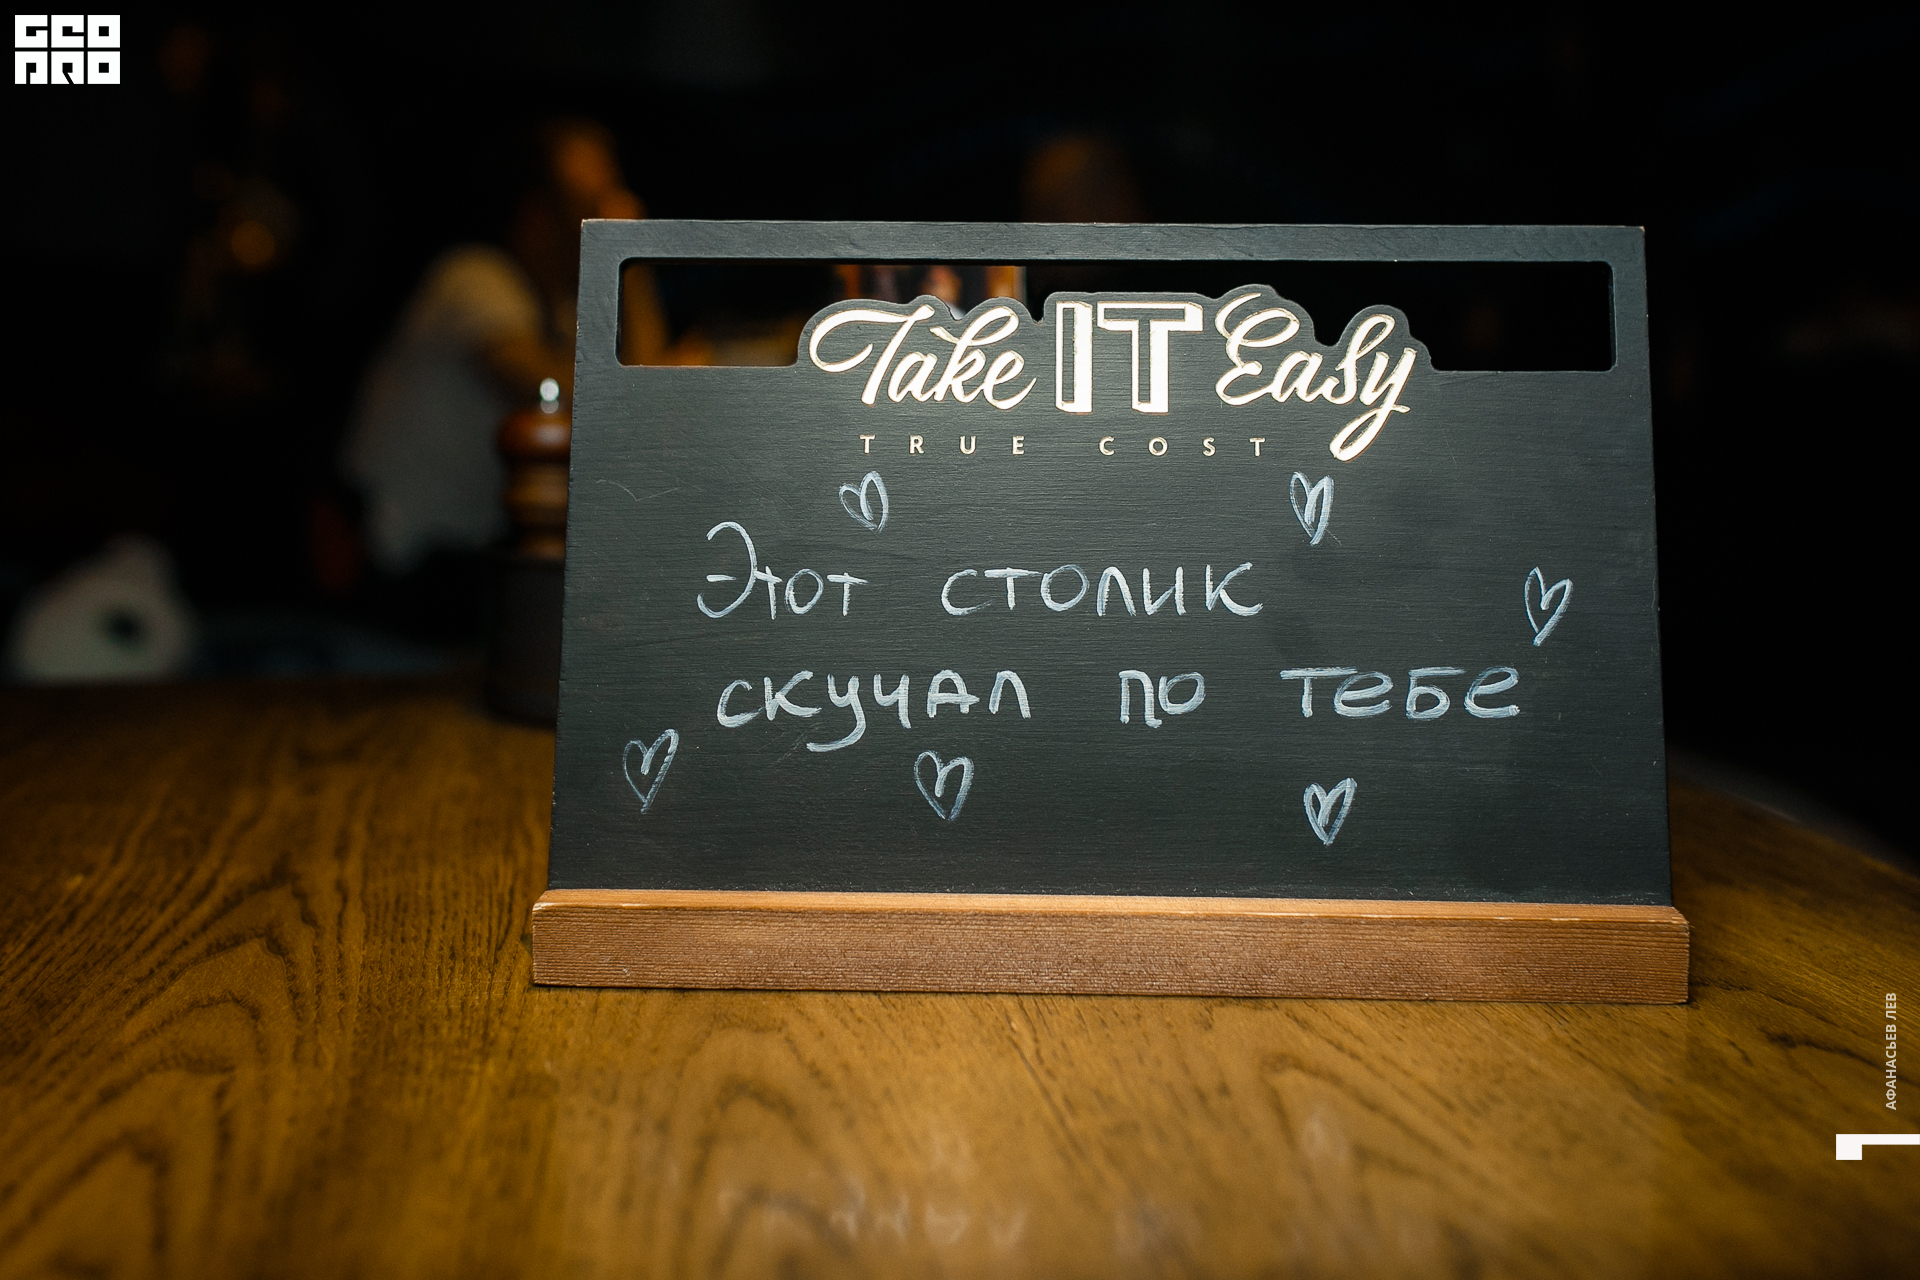 GEO
PRO
Take IT Easy
TRUE COST
Этот столик
скучал по тебе
АФАНАСЬЕВ ЛЕВ